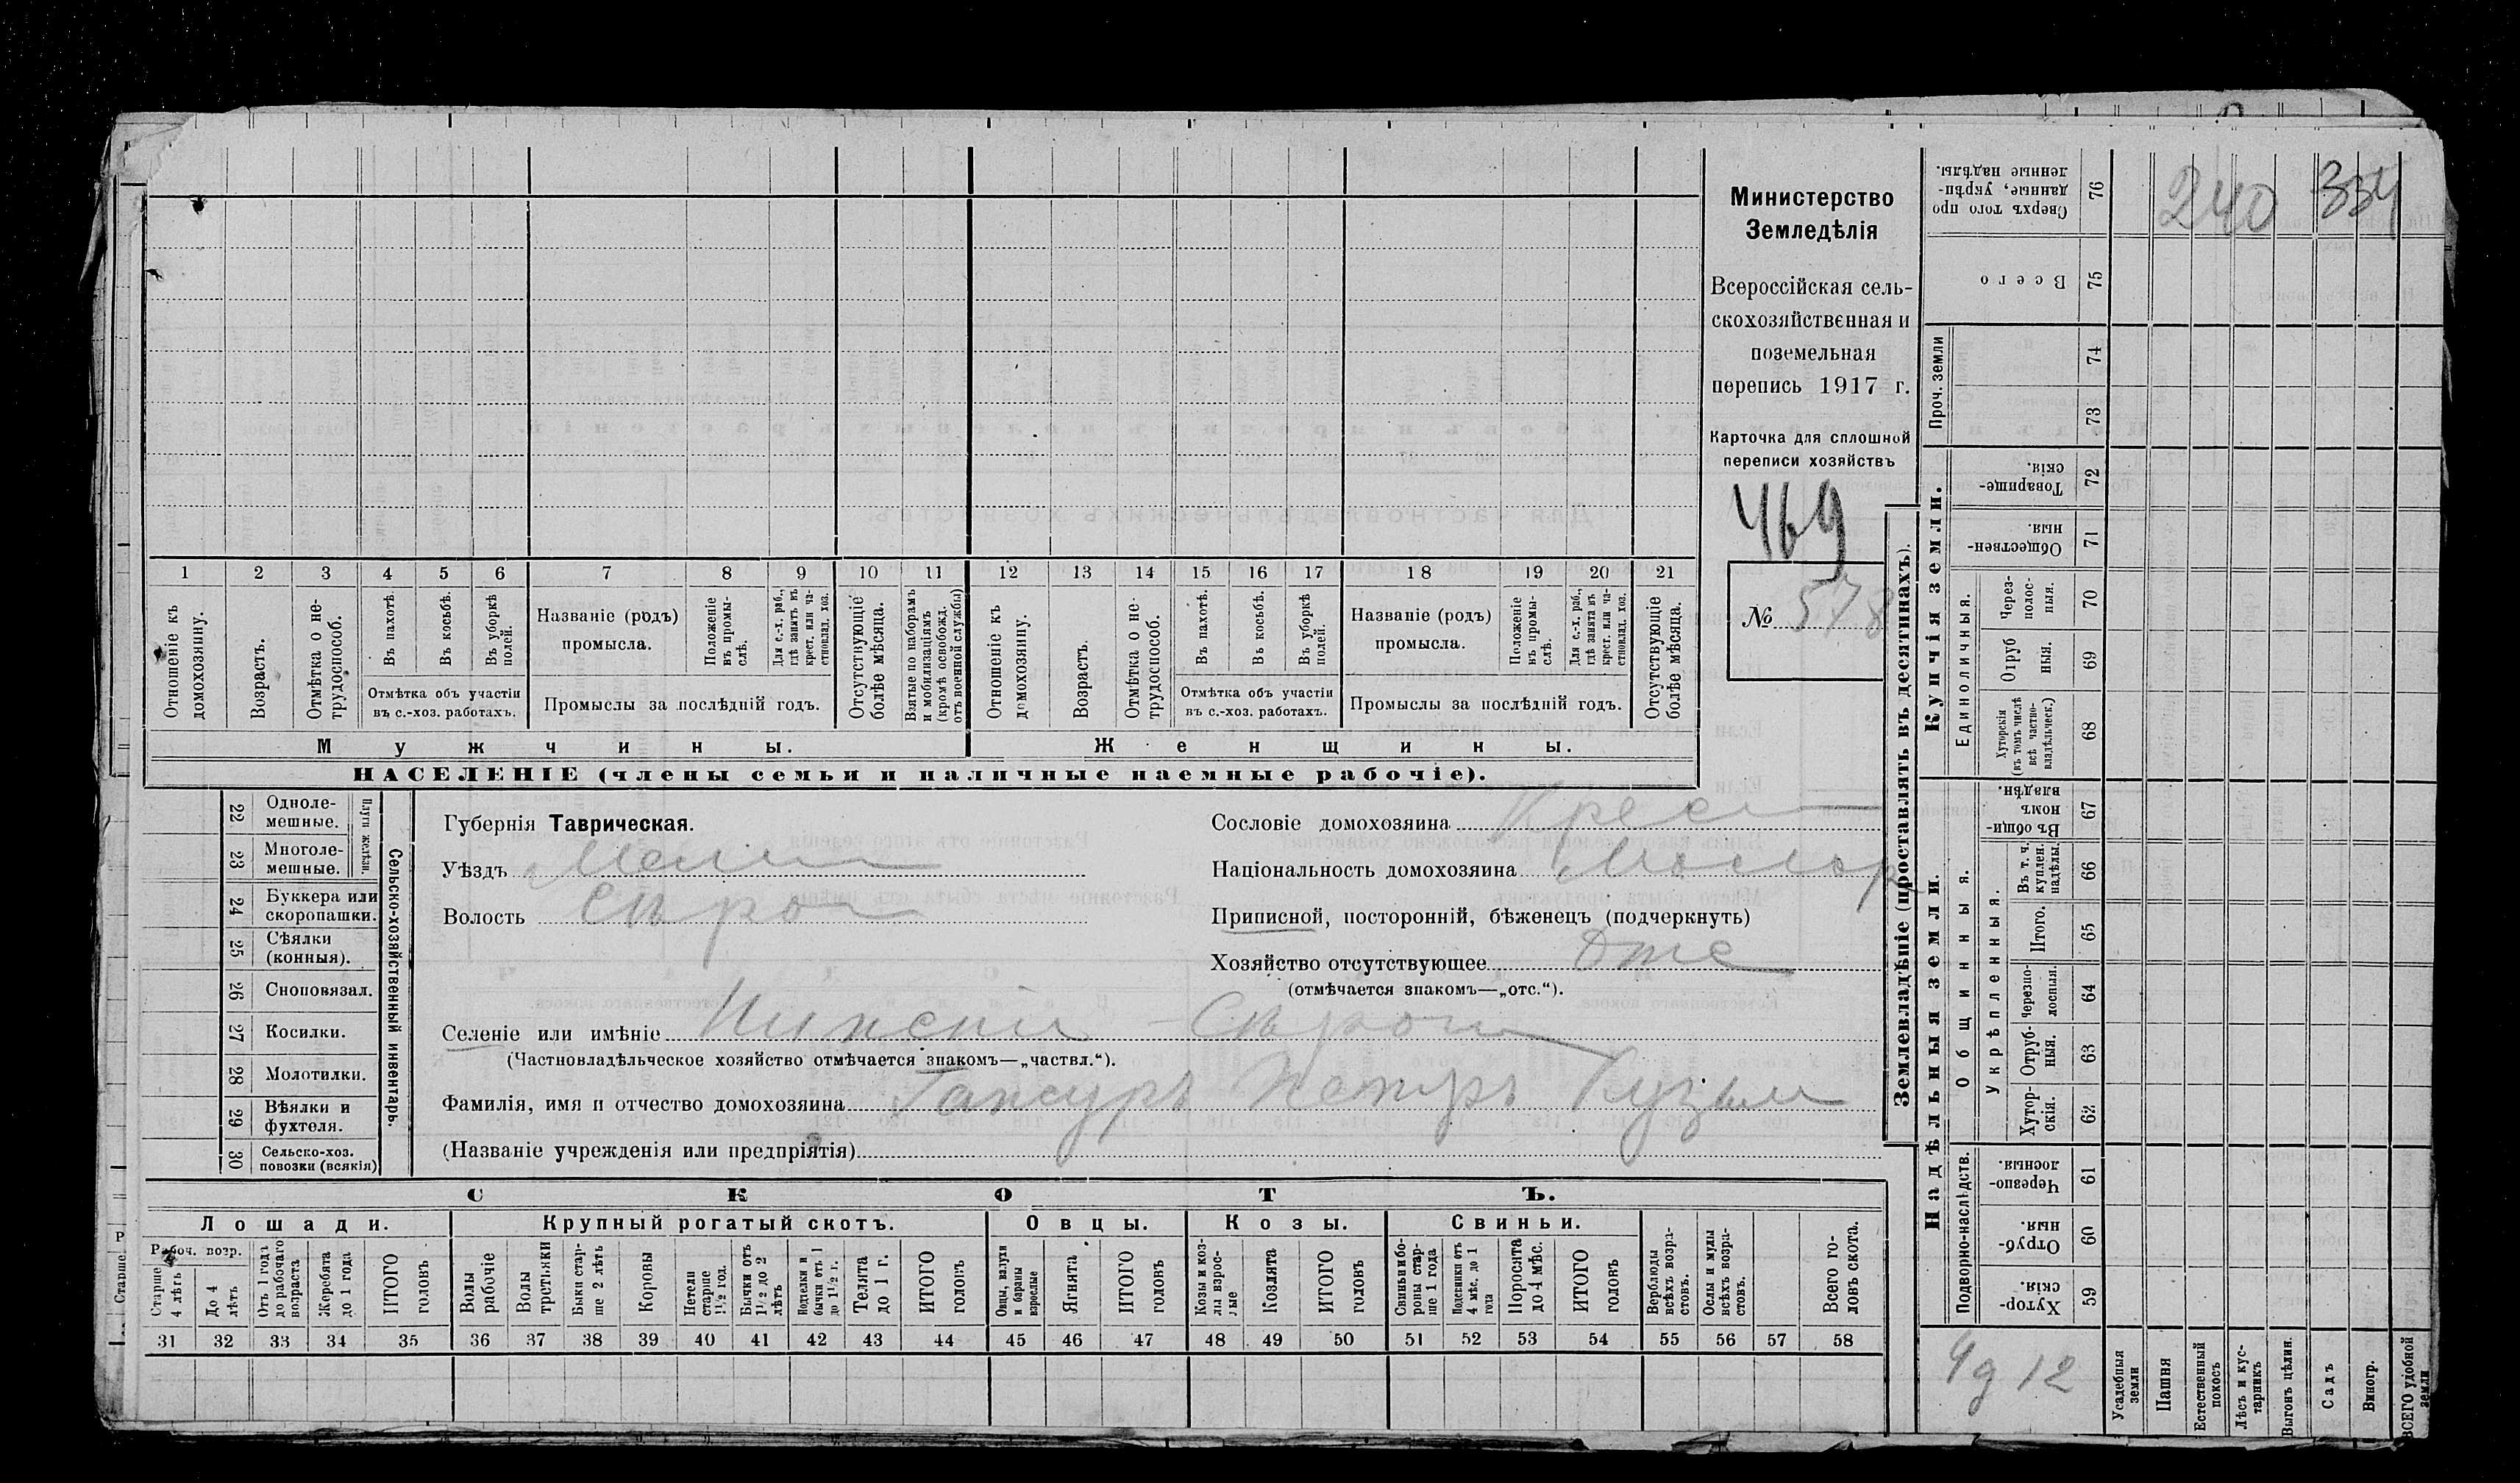 Министерство
Земледѣлія
Всероссійская сель-
скохозяйственная и
поземельная
перепись 1917 г.
Карточка для сплошной
переписи хозяйствъ
469
№ 578
1 2 3 4 5 6 7 8 9 10 11 12 13 14 15 16 17 18 19 20 21
Отношеніе къ домохозяину.
Возрастъ.
Отмѣтка о не-трудоспособ.
Въ пахотѣ.
Въ косьбѣ.
Въ уборкѣ полей.
Отмѣтка объ участіи
въ с.-хоз. работахъ.
Названіе (родъ)
промысла.
Положеніе въ промы-слѣ.
Для с.-х. раб., гдѣ занятъ въ крест. или ча-стновлад. хоз.
Промыслы за послѣдній годъ.
Отсутствующіе болѣе мѣсяца.
Взятые по наборамъ и мобилизаціямъ (кромѣ освобожд. отъ военной службы)
Отношеніе къ домохозяину.
Возрастъ.
Отмѣтка о не-трудоспособ.
Въ пахотѣ.
Въ косьбѣ.
Въ уборкѣ полей.
Отмѣтка объ участіи
въ с.-хоз. работахъ.
Названіе (родъ)
промысла.
Положеніе въ промы-слѣ.
Для с.-х. раб., гдѣ занята въ крест. или ча-стновлад. хоз.
Промыслы за послѣдній годъ.
Отсутствующіе болѣе мѣсяца.
Мужчины. Женщины.
НАСЕЛЕНІЕ (члены семьи и наличные наемные рабочіе).
Сельско-хозяйственный инвентарь.
Плуги желѣзн.
22 Одноле-
мешные.
23 Многоле-
мешные.
24 Буккера или
скоропашки.
25 Сѣялки
(конныя).
26 Сноповязал.
27 Косилки.
28 Молотилки.
29 Вѣялки и
фухтеля.
30 Сельско-хоз.
повозки (всякія)
Губернія Таврическая.
Уѣздъ Мели
Волость Сѣрог
Сословіе домохозяина Крес
Національность домохозяина Малор
Приписной, посторонній, бѣженецъ (подчеркнуть)
Хозяйство отсутствующее Отс
(отмѣчается знакомъ—„отс.“).
Селеніе или имѣніе Нижніи - Сѣрог
(Частновладѣльческое хозяйство отмѣчается знакомъ—„частвл.“).
Фамилія, имя и отчество домохозяина Гансуръ Петръ Кузьм
(Названіе учрежденія или предпріятія)
СКОТЪ.
Лошади. Крупный рогатый скотъ. Овцы. Козы. Свиньи.
Рабоч. возр.
Старше 4 лѣтъ
До 4 лѣтъ
Отъ 1 года до рабочаго возраста
Жеребята до 1 года
ИТОГО головъ
Волы рабочіе
Волы третьяки
Быки стар-ше 2 лѣтъ
Коровы
Нетели старше 1½ год.
Бычки отъ 1½ до 2 лѣтъ
Подтелки и бычки отъ 1 до 1½ г.
Телята до 1 г.
ИТОГО головъ
Овцы, валухи и бараны взрослые
Ягнята
ИТОГО головъ
Козы и коз-лы взрос-лые
Козлята
ИТОГО головъ
Свиньи бо-ровы стар-ше 1 года
Подсвинки отъ 4 мѣс. до 1 года
Поросята до 4 мѣс.
ИТОГО головъ
Верблюды всѣхъ возра-стовъ.
Ослы и мулы всѣхъ возра-стовъ.
Всего го-ловъ скота.
31 32 33 34 35 36 37 38 39 40 41 42 43 44 45 46 47 48 49 50 51 52 53 54 55 56 57 58
Землевладѣніе (проставлять въ десятинахъ).
Надѣльныя земли.
Купчія земли.
Проч. земли
Подворно-наслѣдств.
Общинныя.
Укрѣпленныя.
Единоличныя.
Сверхъ того про
данные, укрѣп-
ленные надѣлы. 76
240 334
Всего 75
74
73
Товарище-
скія. 72
Обществен-
ныя. 71
Через-
полос-
ныя. 70
Отруб
ныя. 69
Хуторскія
(въ томъ числѣ
всѣ частно-
владѣльческ.) 68
Въ общин-
номъ
владѣн. 67
Въ т. ч.
куплен.
надѣлы. 66
Итого. 65
Черезпо-
лосныя. 64
Отруб-
ныя. 63
Хутор-
скія. 62
Черезпо-
лосныя. 61
Отруб-
ныя. 60
Хутор-
скія. 59
12
Усадебныя земли
Пашня
Естественный покосъ
Лѣсъ и кус-тарникъ
Выгонъ цѣлин.
Садъ
Виногр.
ВСЕГО удобной земли
Старше